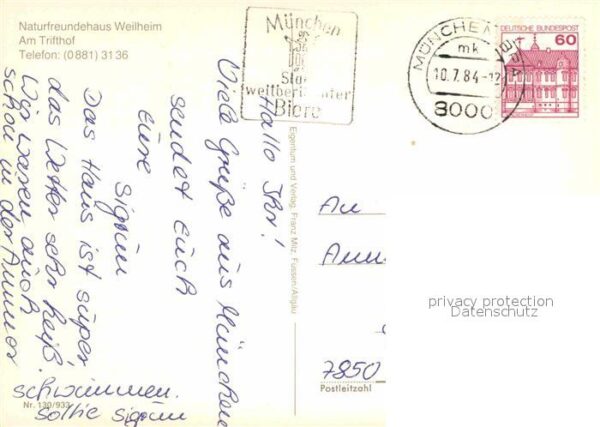 Naturfreundehaus Weilheim
Am Trifthof
Telefon: (0881) 3136
München
weltberühmter
Biere
MÜNCHEN
mk
10.7.84-12
8000
DEUTSCHE BUNDESPOST
60
Hallo Ihr!
Viele Grüße aus München
sendet Euch
Eure
Sigrun
Das Haus ist super,
das Wetter sehr heiß.
Wir waren auch
schon in der Ammer
schwimmen.
Sigrun
Eigentum und Verlag Franz Milz, Füssen/Allgäu
An
7850
Postleitzahl
Nr. 130/932
privacy protection
Datenschutz